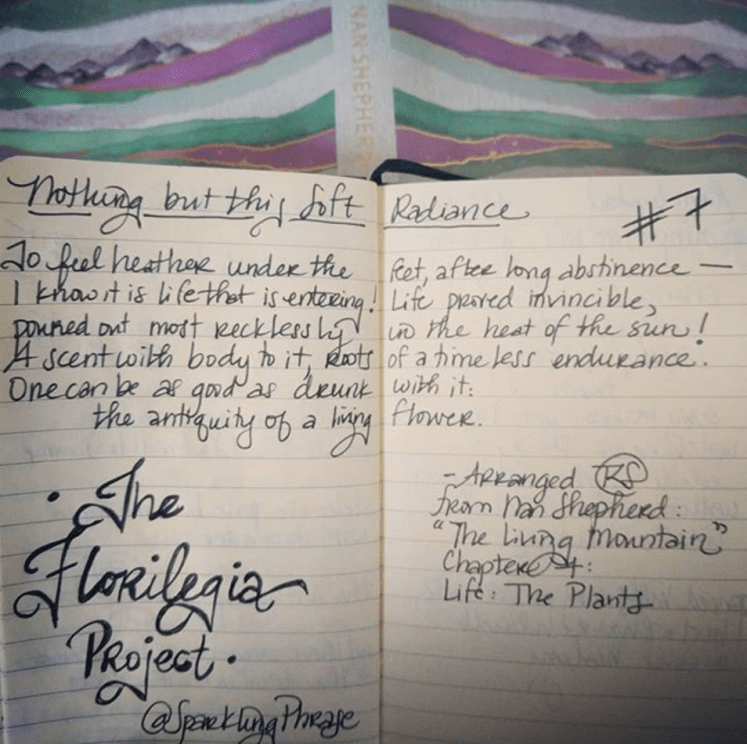 NAN SHEPHERD
Nothing but this Soft Radiance
#7
To feel heather under the feet, after long abstinence —
I know it is life that is entering! Life proved invincible,
poured out most recklessly in the heat of the sun!
A scent with body to it, roots of a timeless endurance.
One can be as good as drunk with it:
the antiquity of a living flower.
- Arranged RS
from Nan Shepherd:
"The Living Mountain"
Chapter 7:
Life: The Plants
• The
Florilegia
Project •
@SparklingPhrase